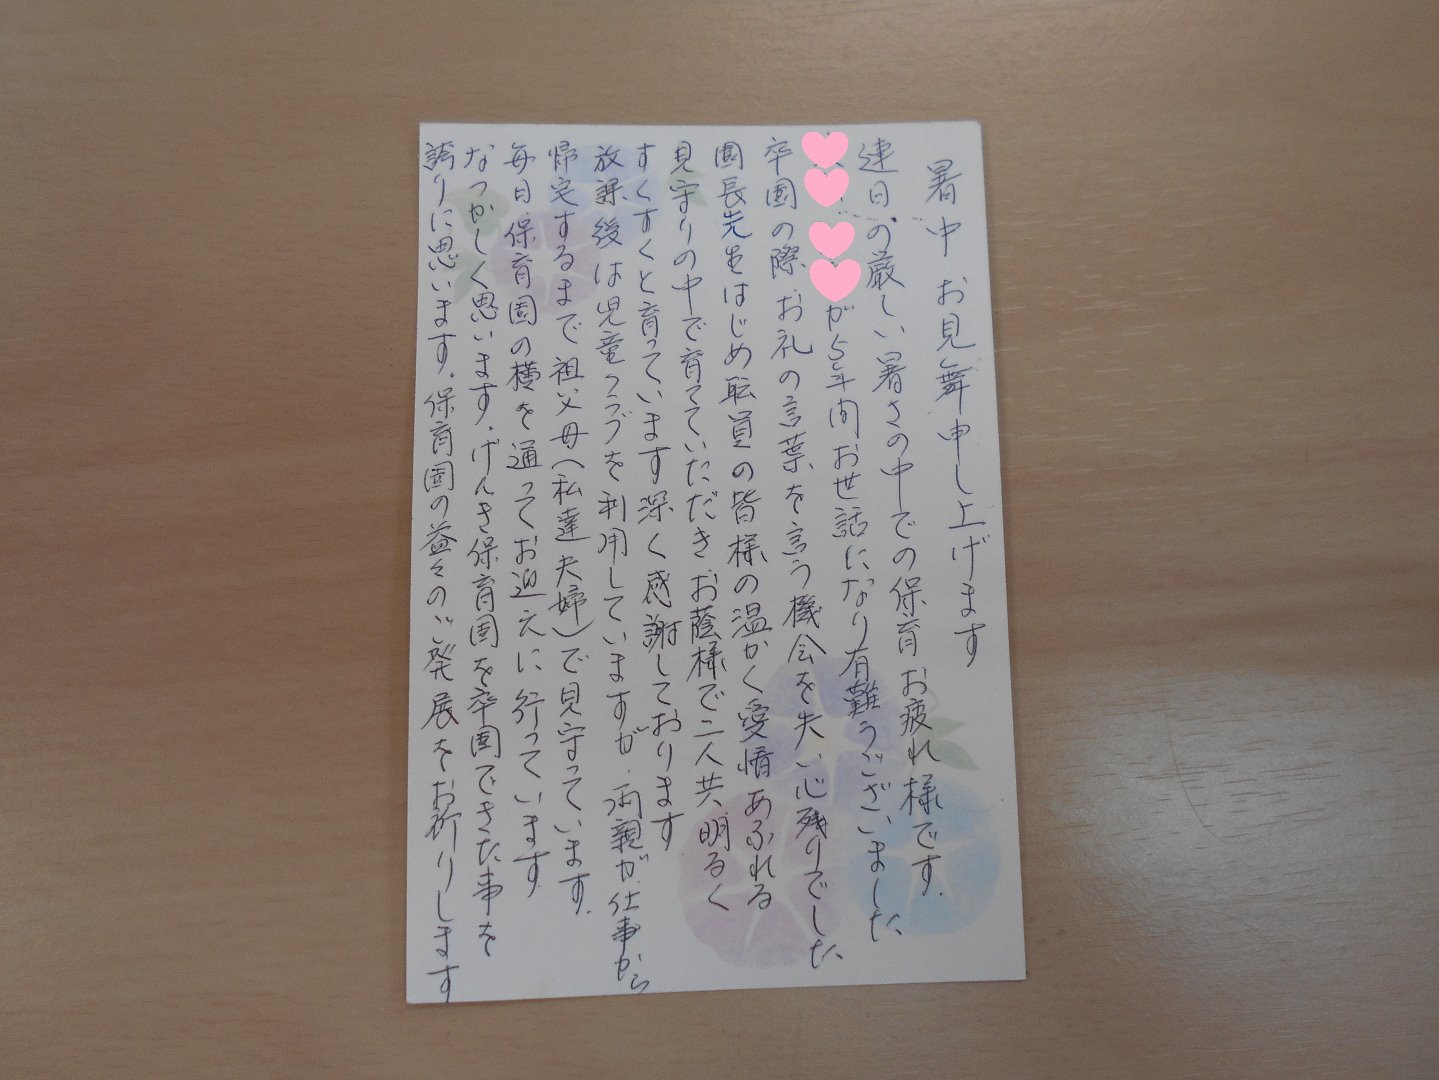 暑中お見舞申し上げます
連日の厳しい暑さの中での保育お疲れ様です.
が5年間お世話になり有難うございました
卒園の際、お礼の言葉を言う機会を失い心残りでした
園長先生はじめ職員の皆様の温かく愛情あふれる
見守りの中で育てていただきお蔭様で二人共、明るく
すくすくと育っています深く感謝しております
放課後は児童クラブを利用していますが、両親が仕事から
帰宅するまで祖父母(私達夫婦)で見守っています.
毎日、保育園の横を通ってお迎えに行っています
なつかしく思います.げんき保育園を卒園できた事を
誇りに思います.保育園の益々のご発展をお祈りします